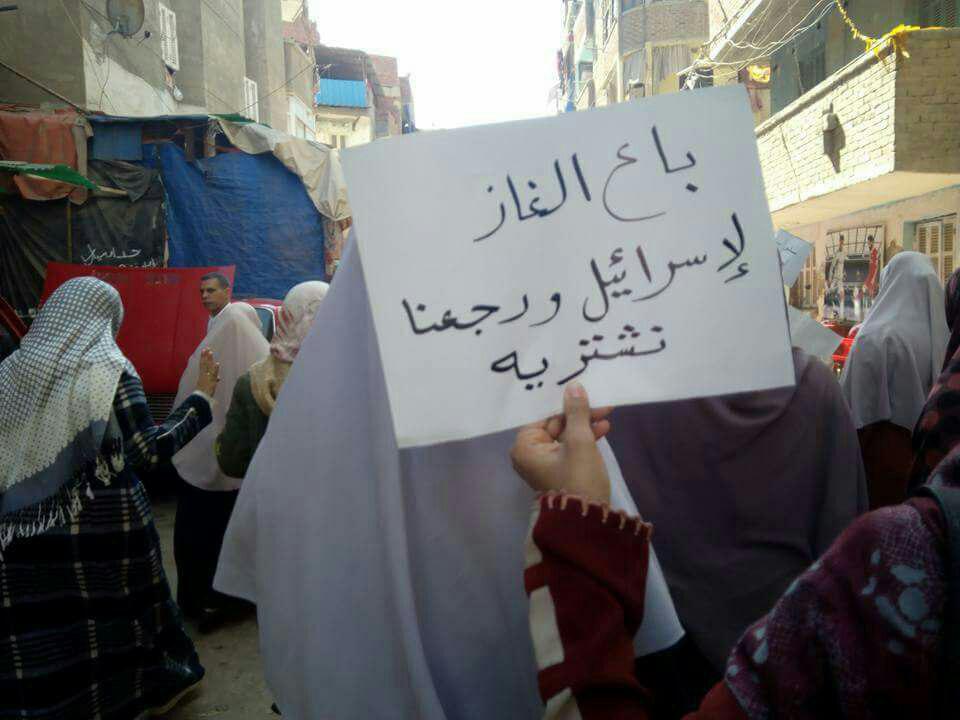 باع الغاز
لإسرائيل ورجعنا
نشتريه